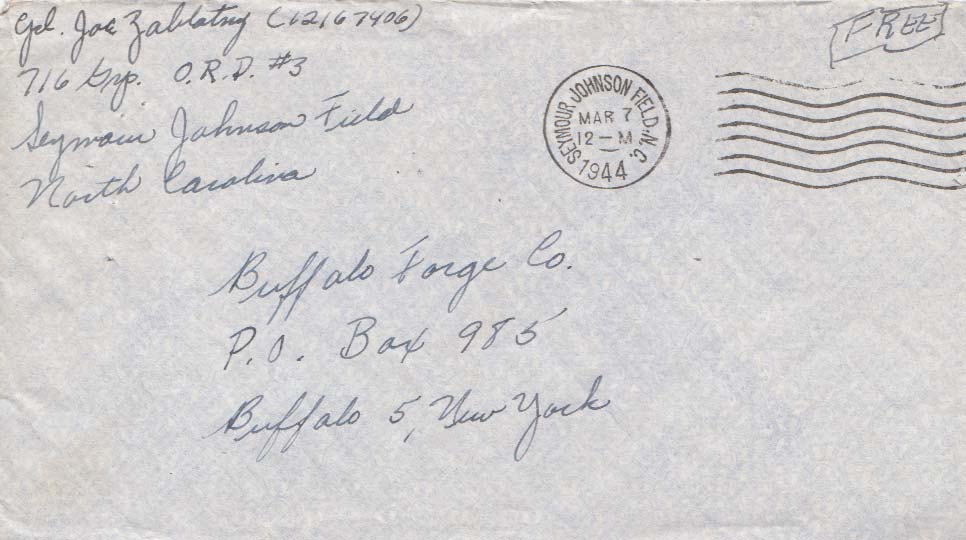 Joe Zablotny (12167406)
716 Grp. O.R.D. #3
Seymour Johnson Field
North Carolina
FREE
SEYMOUR JOHNSON FIELD, N.C.
MAR 7
12 - M
1944
Buffalo Forge Co.
P.O. Box 985
Buffalo 5, New York